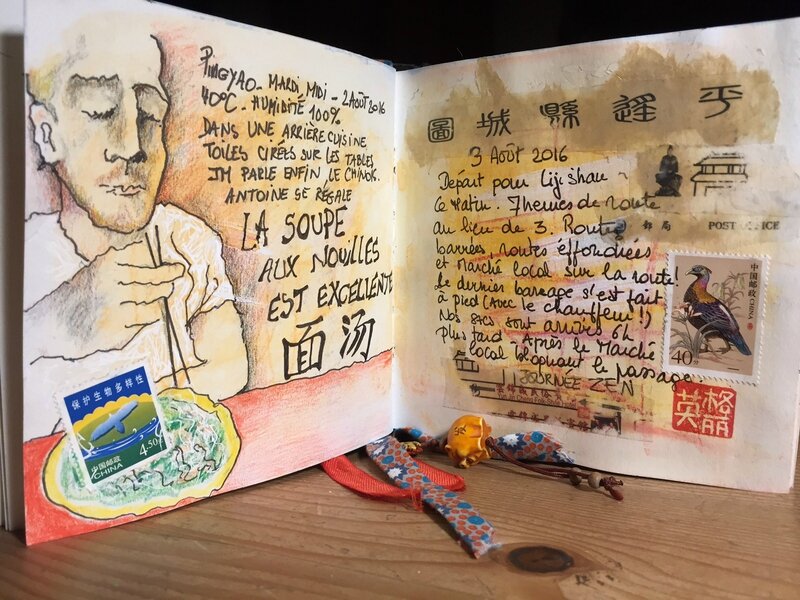 PINGYAO - MARDI, MIDI - 2 AOÛT 2016
40°C - HUMIDITÉ 100%
DANS UNE ARRIÈRE CUISINE,
TOILES CIRÉES SUR LES TABLES
JM PARLE ENFIN LE CHINOIS.
ANTOINE SE RÉGALE
LA SOUPE
AUX NOUILLES
EST EXCELLENTE
面汤
保护生物多样性
4.50
中国邮政
CHINA
圖城縣遥平
3 AOÛT 2016
Départ pour Lijishan -
Ce Matin. 7 heures de route
au lieu de 3. Routes
barrées, routes éffondrées
et Marché local sur la route!
Le dernier barrage s'est fait
à pied (avec le chauffeur!!)
Nos sacs sont arrivés 6h
Plus tard - Après le Marché
local bloquant le passage
1 JOURNÉE ZEN
邮局 POST OFFICE
中国邮政
CHINA
40分
英格丽